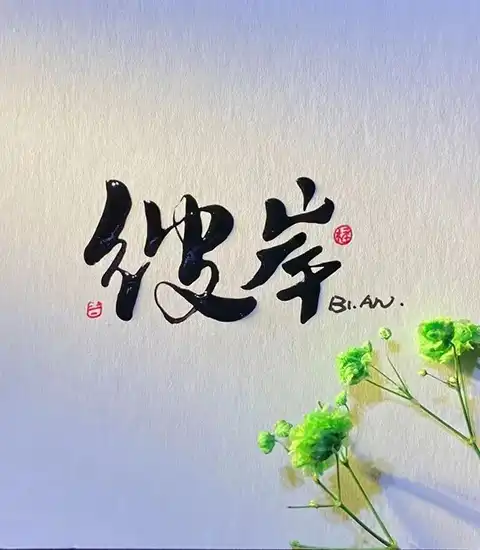 彼岸
BI.AN.